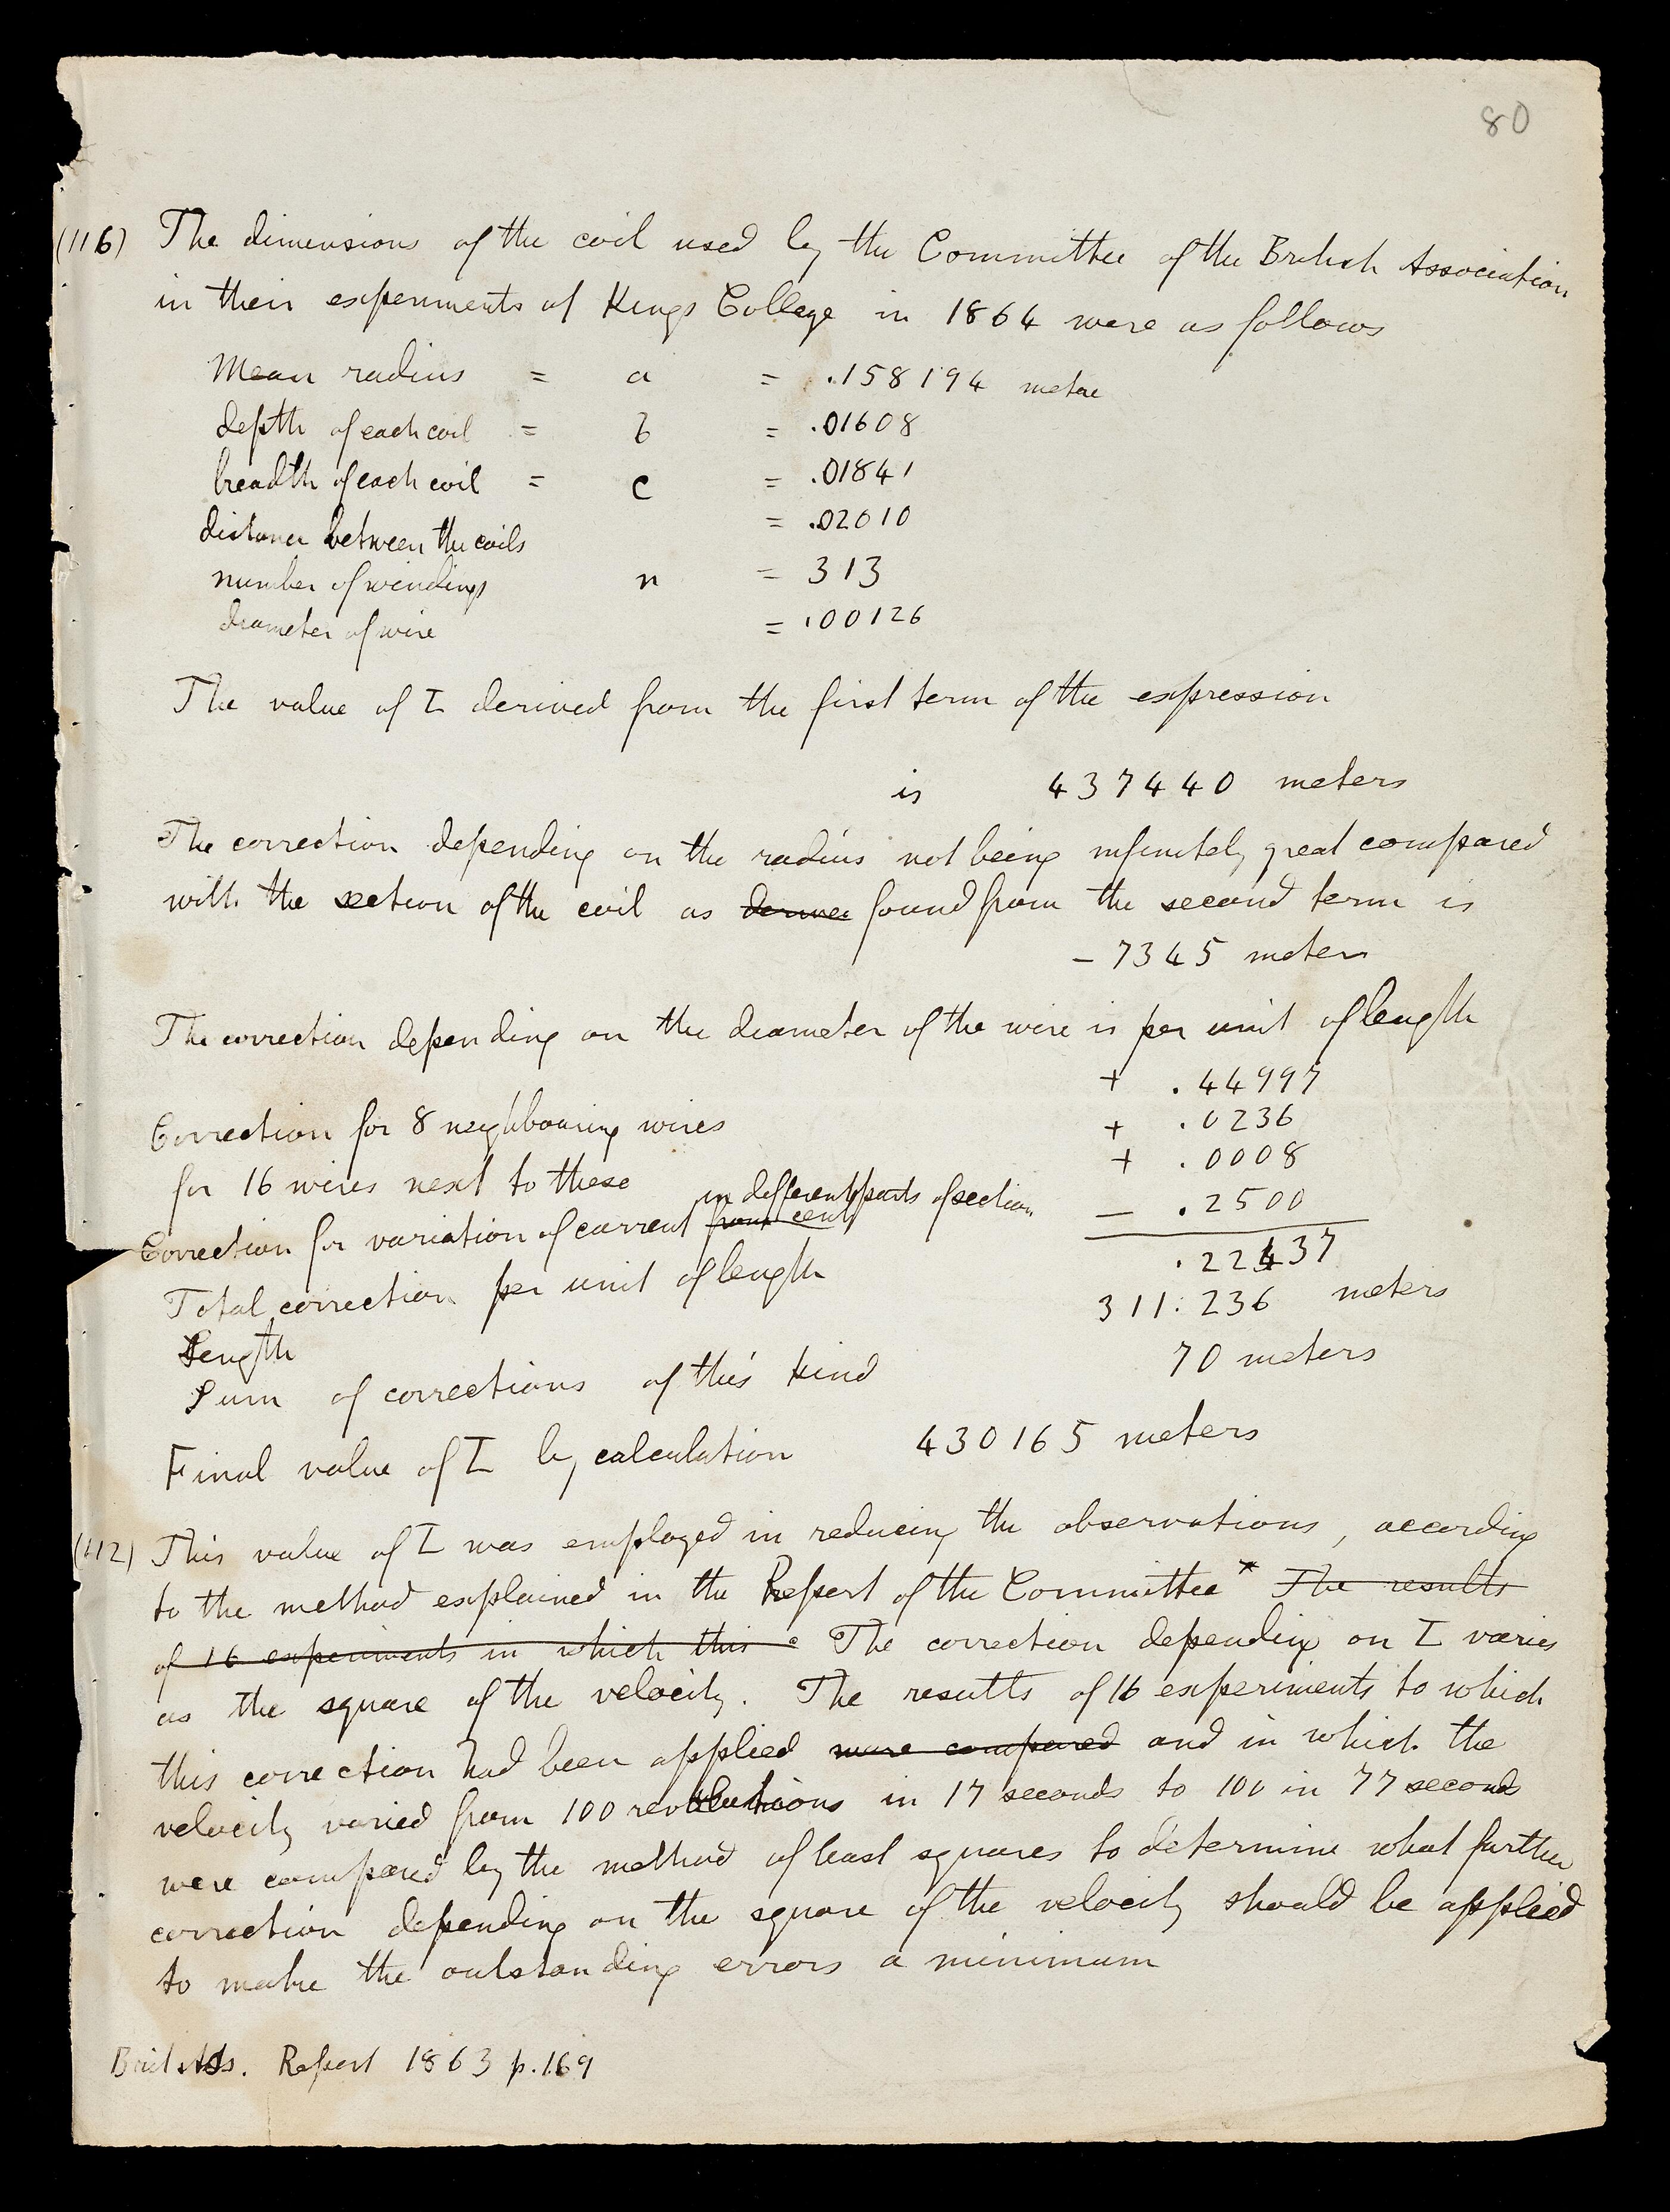 80
(116) The dimensions of the coil used by the Committee of the British Association
in their experiments at Kings College in 1864 were as follows
Mean radius = a = .158194 metre
depth of each coil = b = .01608
breadth of each coil = c = .01841
distance between the coils = .02010
number of windings n = 313
diameter of wire = .00126
The value of L derived from the first term of the expression
is 437440 meters
The correction depending on the radius not being infinitely great compared
with the section of the coil as found from the second term is
– 7345 meters
The correction depending on the diameter of the wire is per unit of length
+ .44997
Correction for 8 neighbouring wires + .0236
for 16 wires next to these + .0008
Correction for variation of current from cent in different parts of section – .2500
Total correction per unit of length .22437
Length 311.236 meters
Sum of corrections of this kind 70 meters
Final value of L by calculation 430165 meters
(112) This value of L was employed in reducing the observations, according
to the method explained in the Report of the Committee* The results
of 16 experiments in which this The correction depending on L varies
as the square of the velocity. The results of 16 experiments to which
this correction had been applied were compared and in which the
velocity varied from 100 revolutions in 17 seconds to 100 in 77 seconds
were compared by the method of least squares to determine what further
correction depending on the square of the velocity should be applied
to make the outstanding errors a minimum
Brit Ass. Report 1863 p.169